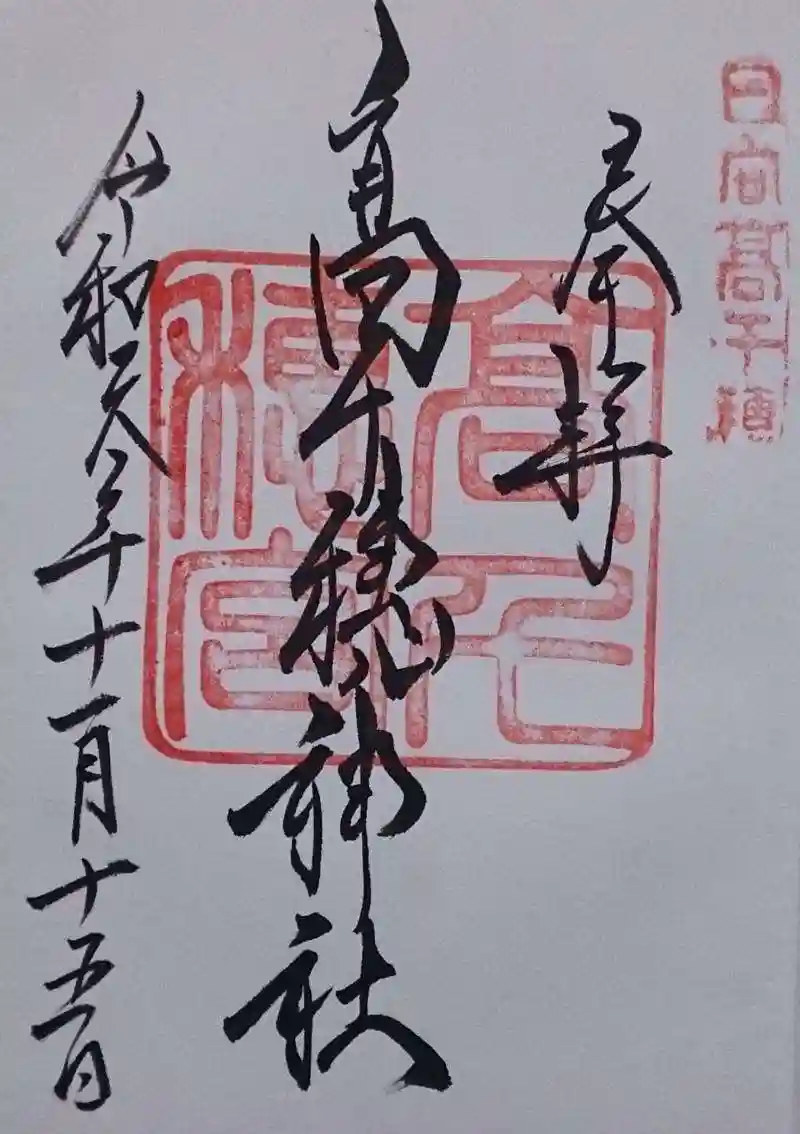 日向高千穂
奉拝
高千穂神社
高千
穂宮
令和元年十一月十五日